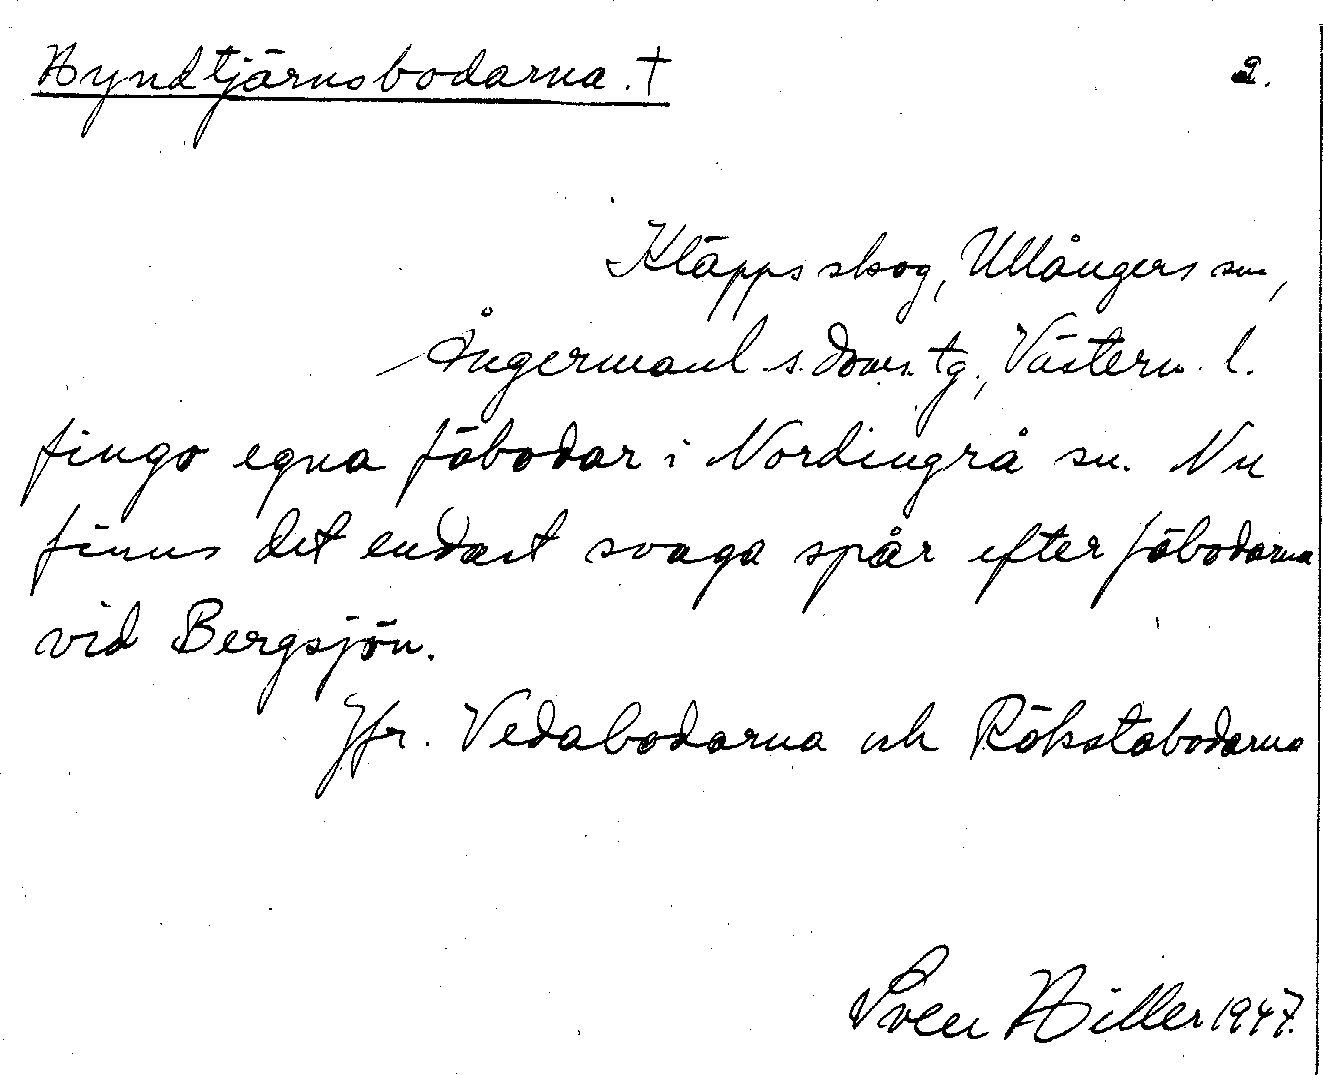 Hyndtjärnsbodarna. † 2.
Kläppsskog, Ullångers sn,
Ångermanl. s. doms. tg., Västern. l.
fingo egna fäbodar i Nordingrå sn. Nu
finns det endast svaga spår efter fäbodarna
vid Bergsjön.
Jfr. Vedabodarna och Rökstabodarna
Sven Hiller 1947.